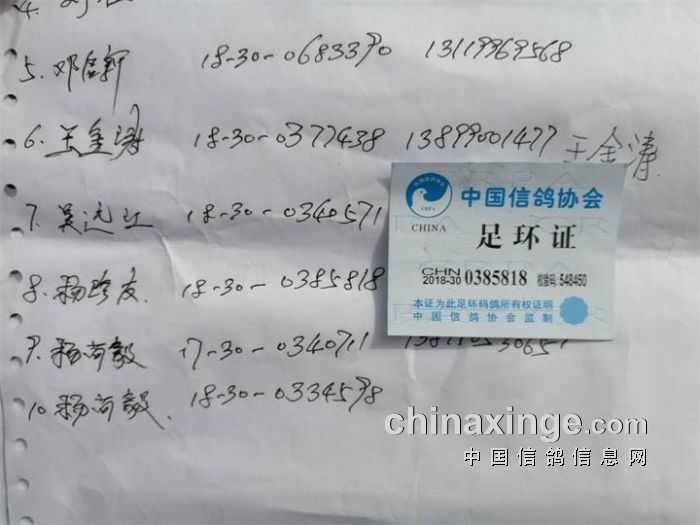 5. 邓启新 18-30-0683370 13119969568
6. 王金涛 18-30-0377438 13899001477 王金涛
7. 吴远江 18-30-0340571
8. 杨 友 18-30-0385818
9. 杨 毅 17-30-0340711
10. 杨 毅 18-30-0334598
中国信鸽协会
CHRPA
CHINA
足环证
CHN
2018-30 0385818 校验码:548450
本证为此足环码鸽所有权证明
中国信鸽协会监制
chinaxinge.com
中国信鸽信息网